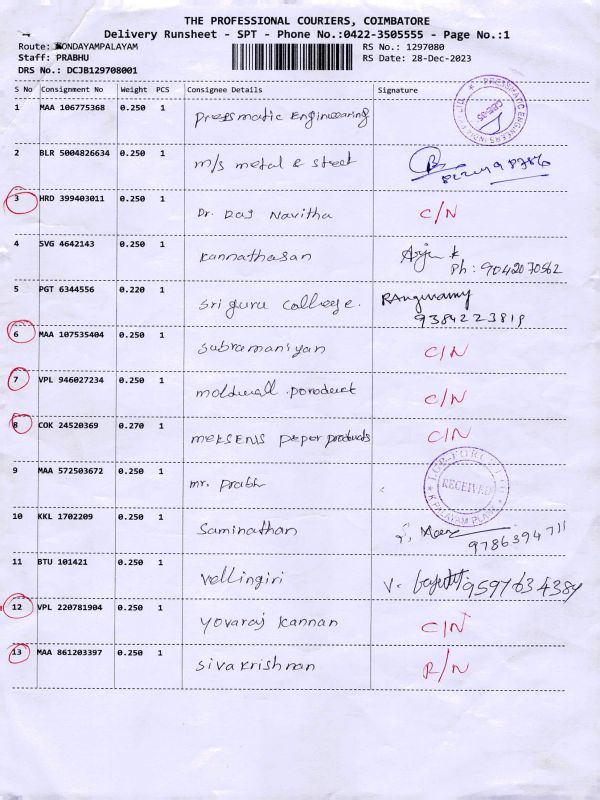 THE PROFESSIONAL COURIERS, COIMBATORE
Delivery Runsheet - SPT - Phone No.:0422-3505555 - Page No.:1
Route: KONDAYAMPALAYAM RS No.: 1297080
Staff: PRABHU RS Date: 28-Dec-2023
DRS No.: DCJB129708001
S No Consignment No Weight PCS Consignee Details Signature
1 MAA 106775368 0.250 1 Pressmatic Engineering
2 BLR 5004826634 0.250 1 m/s metal & street
3 HRD 399403011 0.250 1 Dr. Raj Navitha C/N
4 SVG 4642143 0.250 1 Kannathasan
Ph: 9042070562
5 PGT 6344556 0.220 1 sri guru college. RAngaswamy
9384223819
6 MAA 107535404 0.250 1 subramaniyan C/N
7 VPL 946027234 0.250 1 moldwall product C/N
8 COK 24520369 0.270 1 meksens paper products C/N
9 MAA 572503672 0.250 1 mr. Prabh RECEIVED
10 KKL 1702209 0.250 1 Saminathan 9786394711
11 BTU 101421 0.250 1 Vellingiri V. 9597634384
12 VPL 220781904 0.250 1 yovaraj kannan C/N
13 MAA 861203397 0.250 1 sivakrishnan R/N